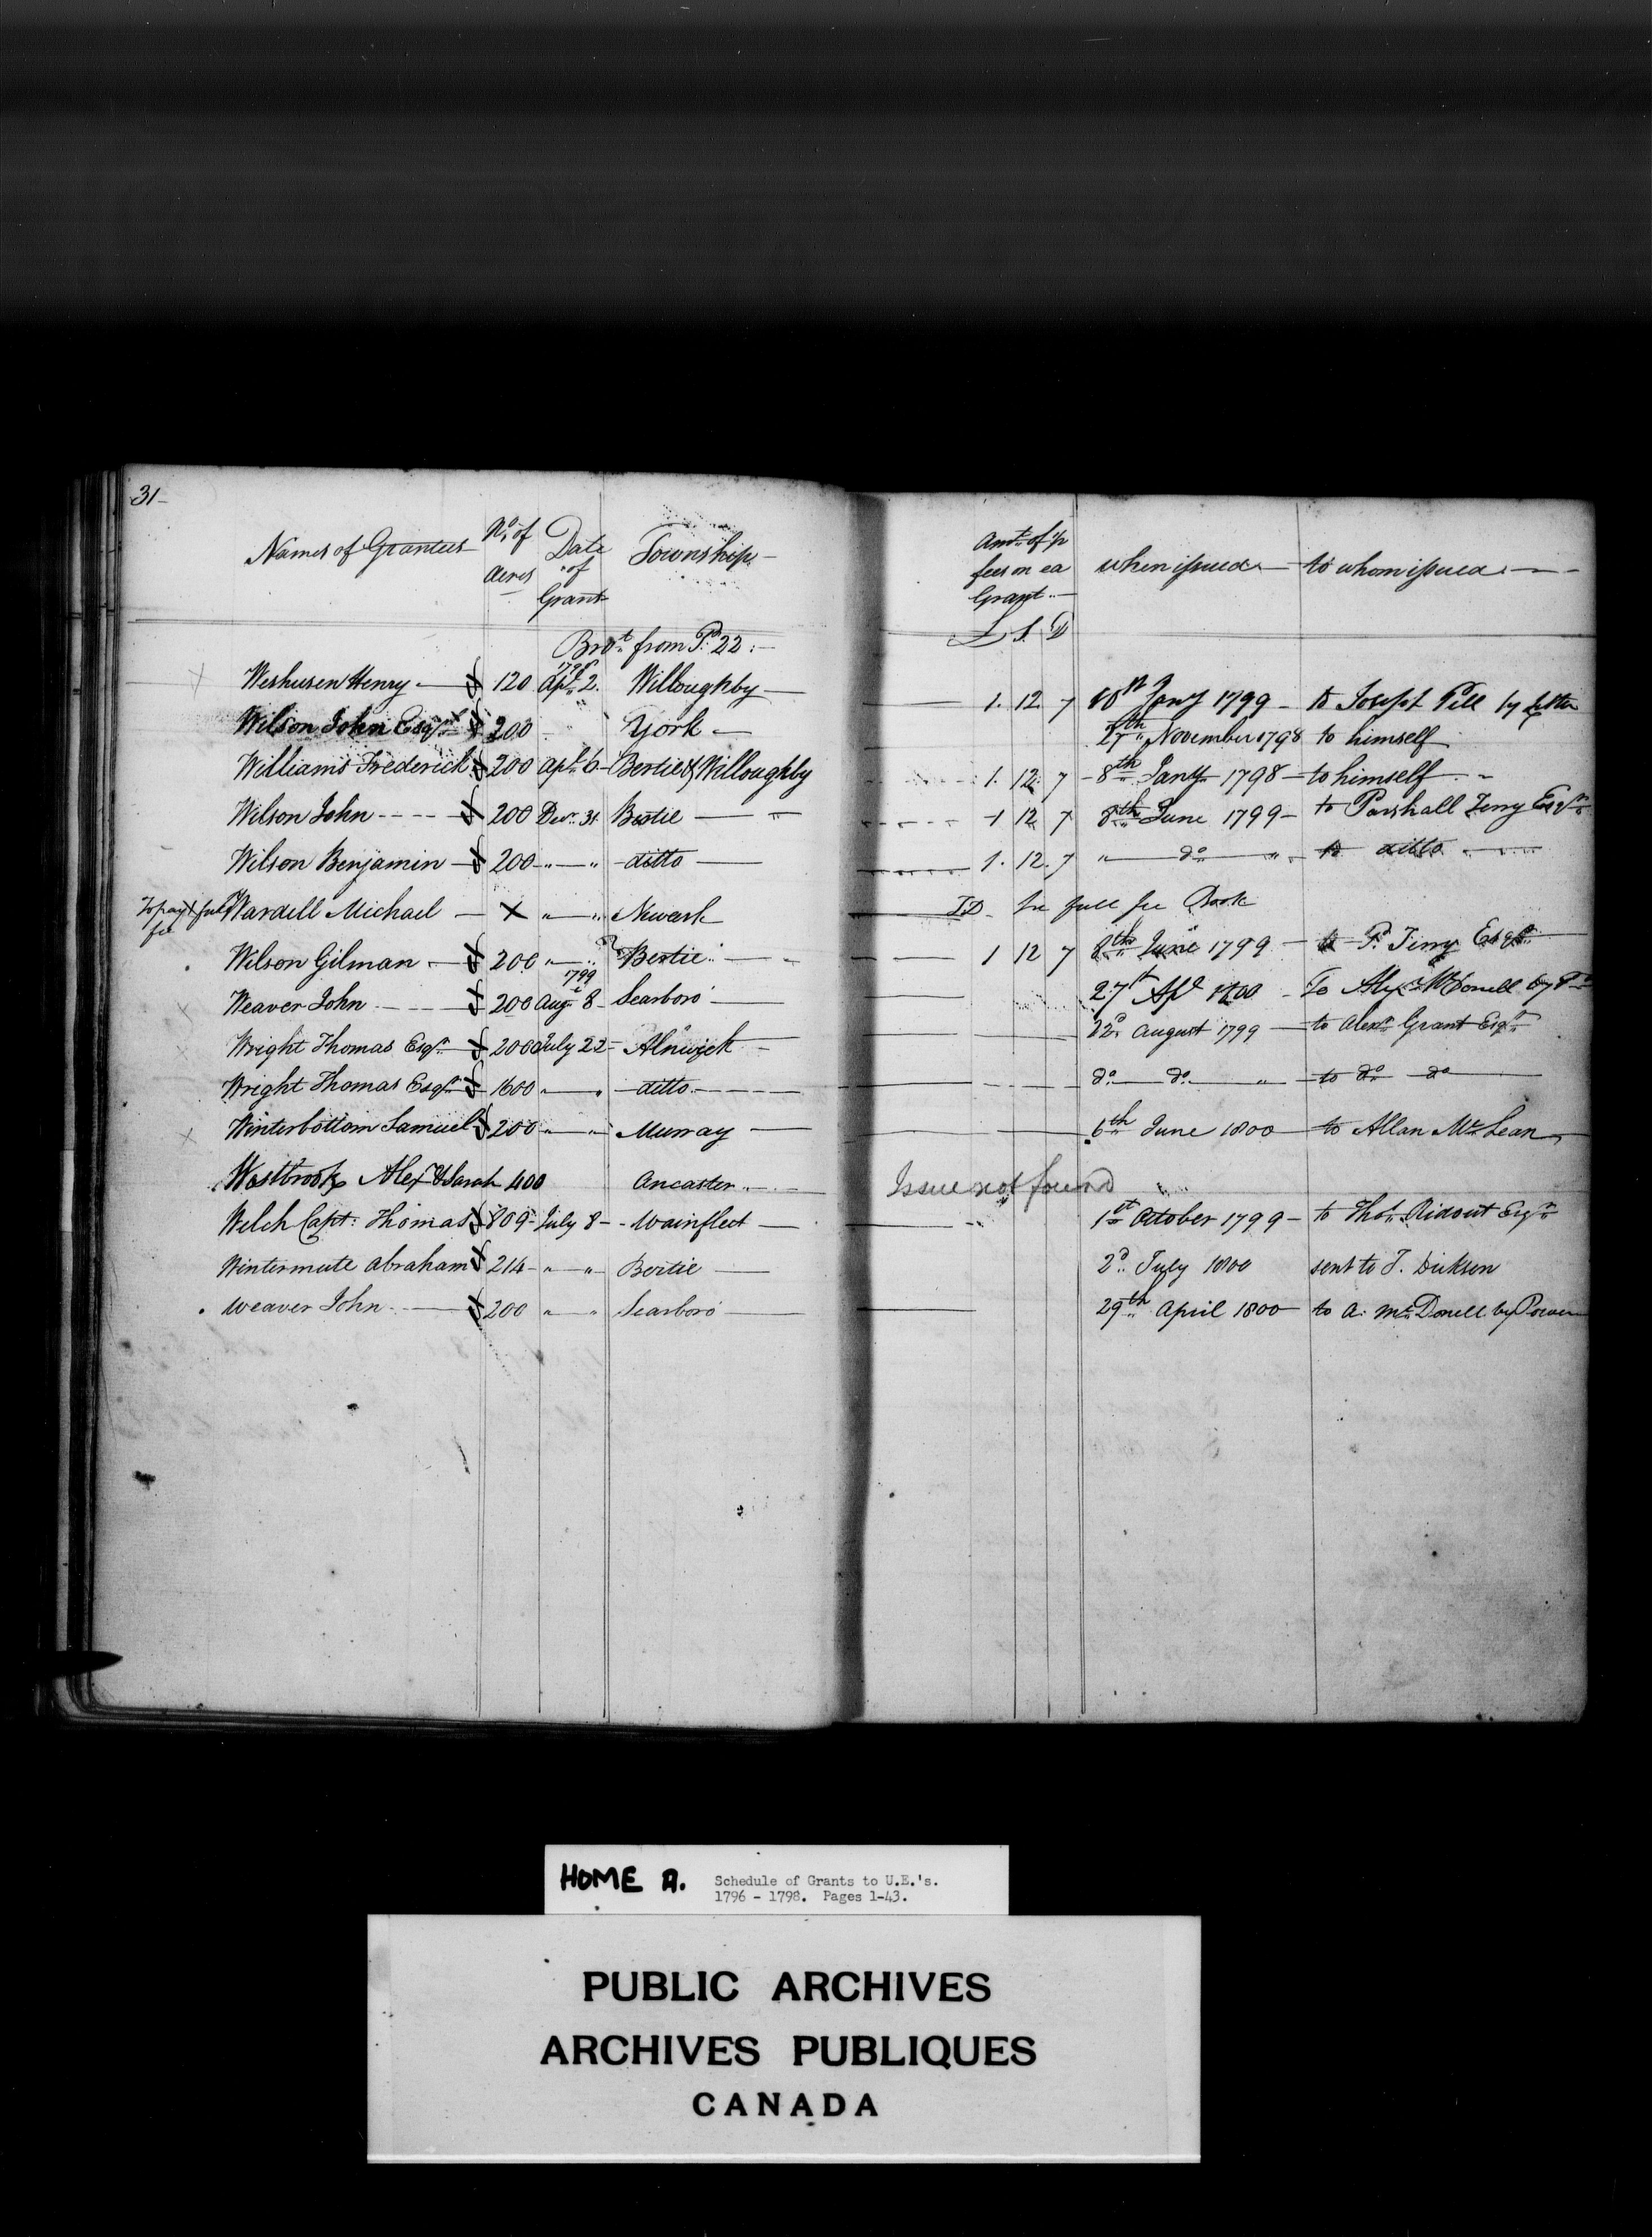 31-
Names of Grantees No. of Acres Date of Grant Township Amt. of p fees on ea Grant when issued to whom issued
L S. D
Brot. from P. 22
Weshusen Henry 120 1798 Apl. 2. Willoughby 1. 12 7 Jany 1799 to Joseph Pell by letter
Wilson John Esqr. 200 York 27th November 1798 to himself
Williams Frederick 200 Apl. 6 Bertie & Willoughby 1. 12. 7 8th Jany 1798 to himself
Wilson John 200 Decr. 31 Bertie 1 12 7 8th June 1799 to Parshall Terry Esqr.
Wilson Benjamin 200 " " ditto 1. 12. 7 " do " to ditto
To pay full fee Wardell Michael X " " Newark full fee Book
Wilson Gilman 200 " " Bertie 1 12 7 8th June 1799 to P. Terry Esqr.
Weaver John 200 1799 Augt 8 Scarboro 27th Apl 1800 To Alexr. McDonell by
Wright Thomas Esqr. 2000 July 22 Alnwick 22d. August 1799 to Alexr. Grant Esqr.
Wright Thomas Esqr. 1600 " " ditto do do " to do do
Winterbottom Samuel 200 " " Murray 6th June 1800 to Allan McLean
Westbrook Alexr & Sarah 400 Ancaster Issue not found
Welch Capt. Thomas 809 July 8 Wainfleet 1st October 1799 to Thos. Ridout Esqr.
Wintermute Abraham 214 " " Bertie 2d. July 1800 sent to T. Dickson
Weaver John 200 " " Scarboro 29th April 1800 to A. McDonell by Power
HOME A. Schedule of Grants to U.E.'s.
1796 - 1798. Pages 1-43.
PUBLIC ARCHIVES
ARCHIVES PUBLIQUES
CANADA